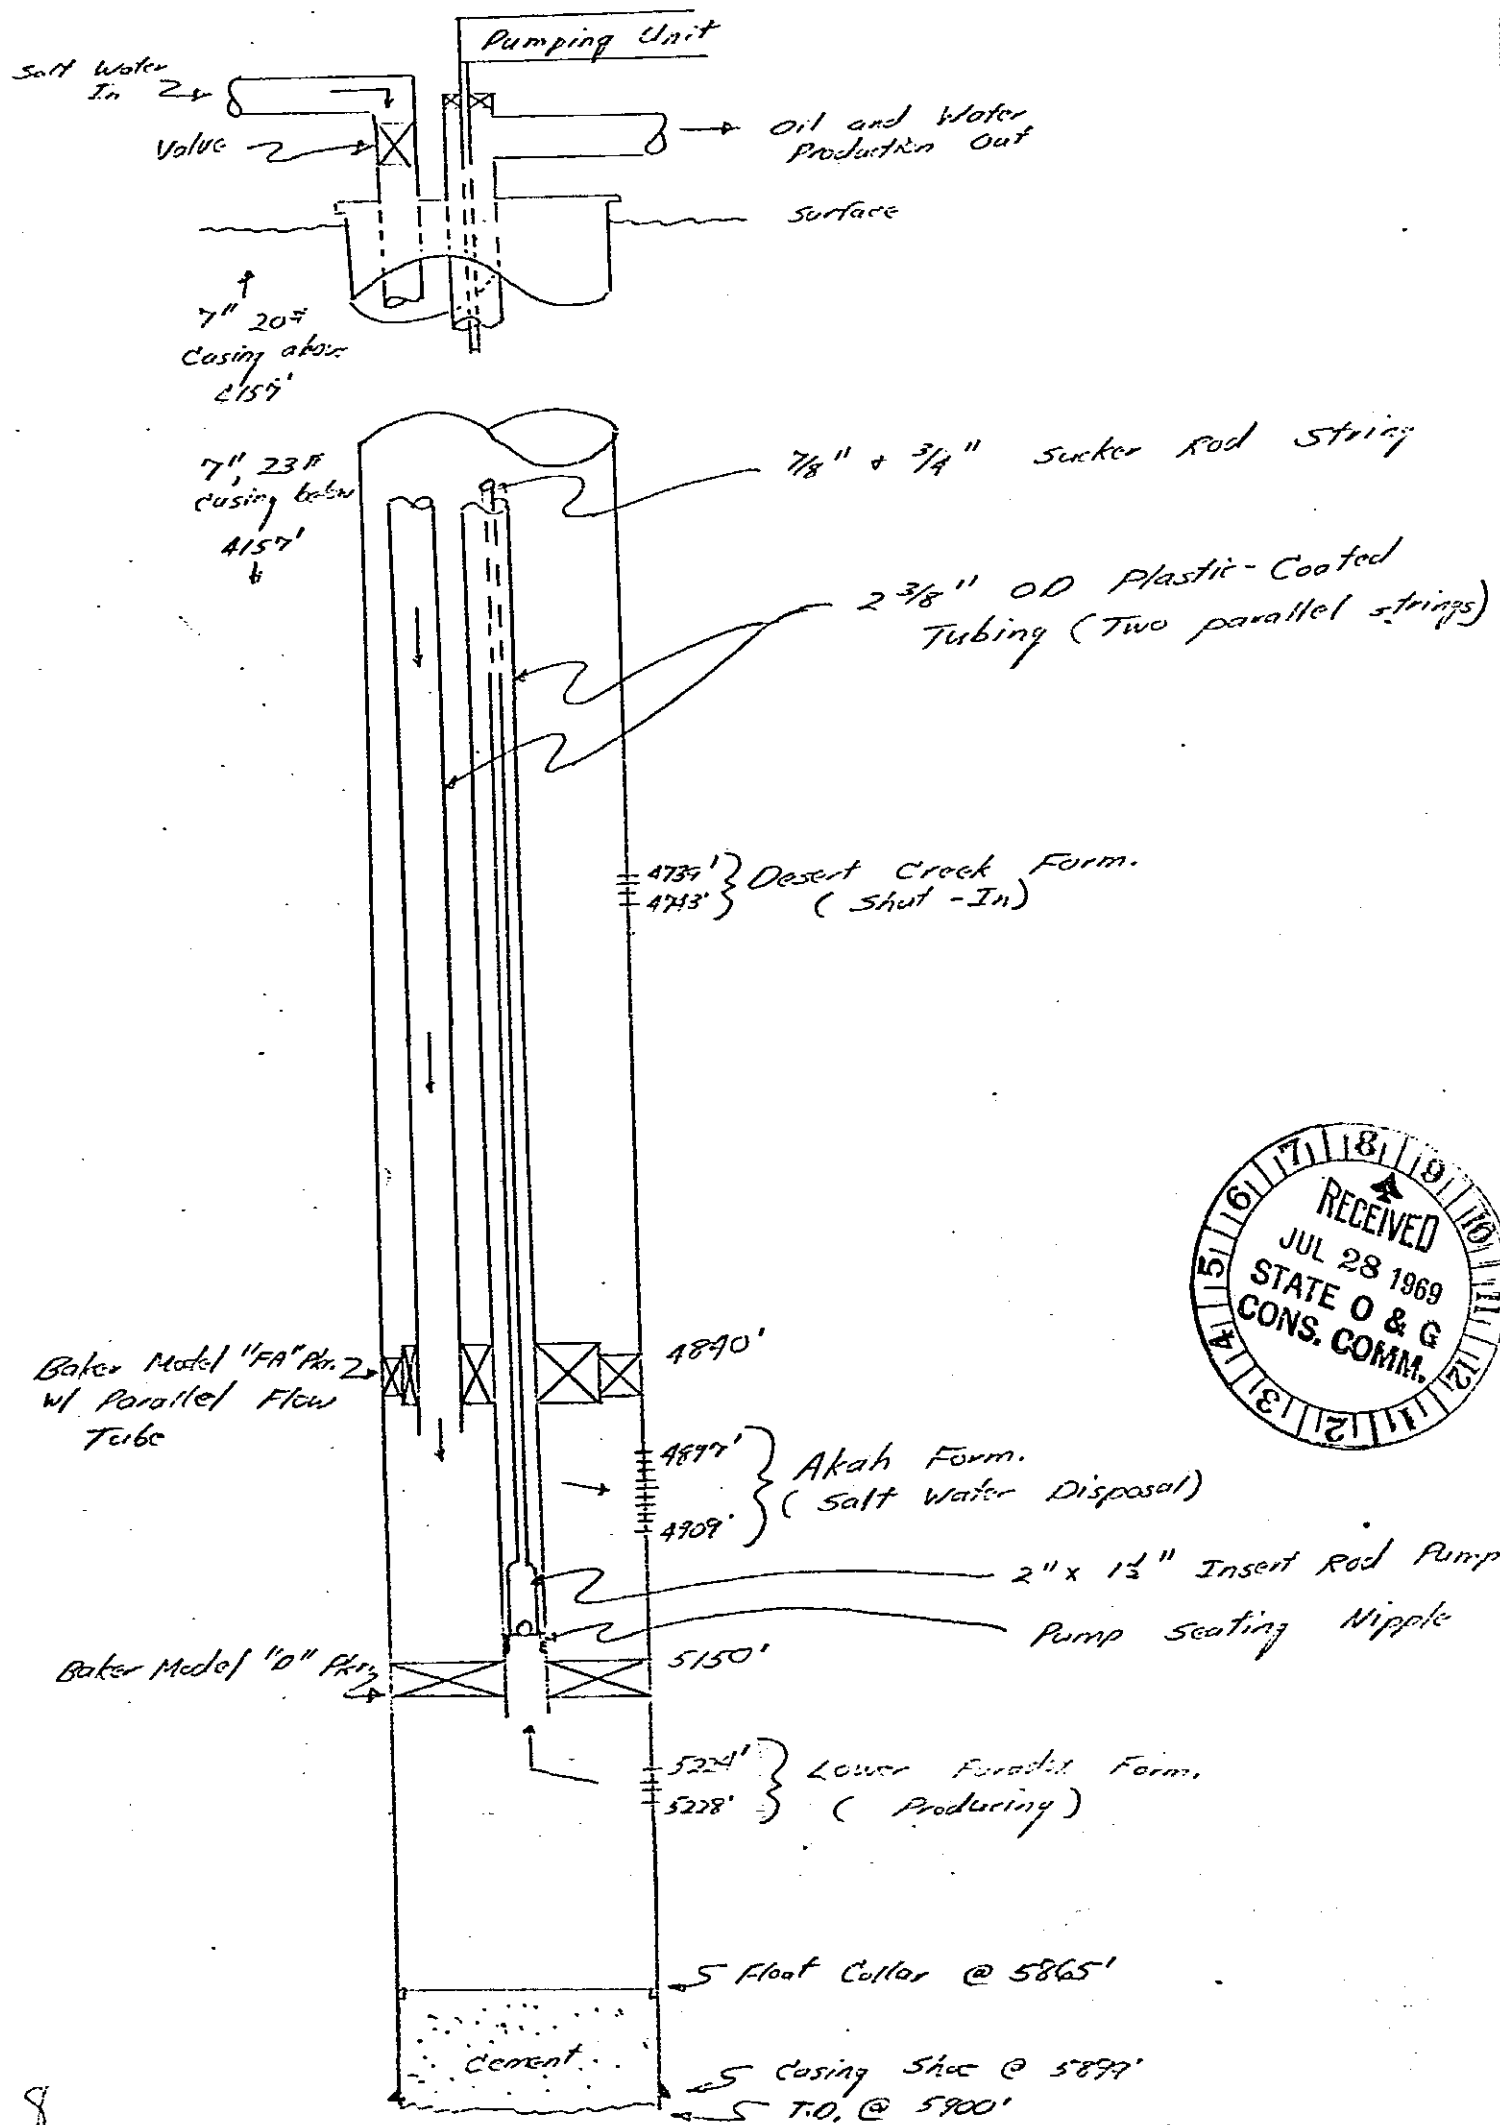 Pumping Unit
Salt Water
In
Valve
Oil and Water
Production Out
Surface
7" 20#
Casing above
4157'
7", 23#
Casing below
4157'
7/8" & 3/4" Sucker Rod String
2 3/8" OD Plastic-Coated
Tubing (Two parallel strings)
4739'
4743'
Desert Creek Form.
(Shut-In)
RECEIVED
JUL 28 1969
STATE O & G
CONS. COMM.
1 2 3 4 5 6 7 8 9 10 11 12
Baker Model "FA" Pkr.
w/ Parallel Flow
Tube
4840'
4897'
4909'
Akah Form.
(Salt Water Disposal)
2" x 1½" Insert Rod Pump
Pump Seating Nipple
Baker Model "D" Pkr.
5150'
5224'
5228'
Lower Paradox Form.
(Producing)
Float Collar @ 5865'
Cement
Casing Shoe @ 5899'
T.D. @ 5900'
8